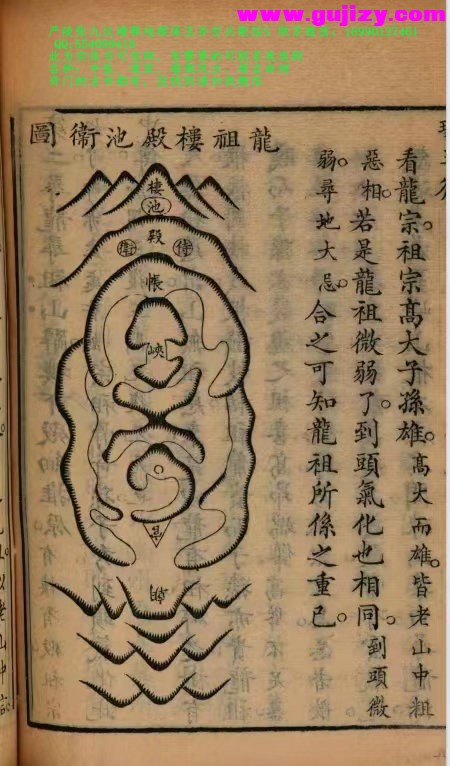 www.gujizy.com
龍祖樓殿池衛圖
看龍宗。祖宗高大子孫雄。高大而雄。皆老山中粗
惡相。若是龍祖微弱了。到頭氣化也相同。到頭微
弱。尋地大忌。合之可知龍祖所係之重已。
樓
池
殿
侍
衛
帳
峽